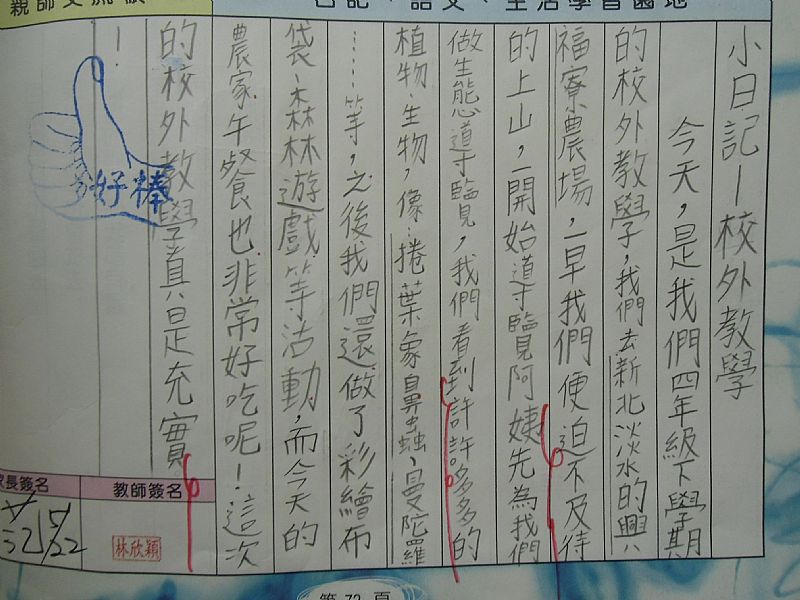 日記、語文、生活學習園地
小日記—校外教學
今天，是我們四年級下學期
的校外教學，我們去新北淡水的興
福寮農場，一早我們便迫不及待
的上山，一開始導覽阿姨先為我們
做生態導覽，我們看到許許多多的
植物、生物，像：捲葉象鼻蟲、曼陀羅
……等，之後我們還做了彩繪布
袋、森林遊戲等活動，而今天的
農家午餐也非常好吃呢！這次
的校外教學真是充實
！
好棒
教師簽名
林欣穎
家長簽名
5/22
第 72 頁